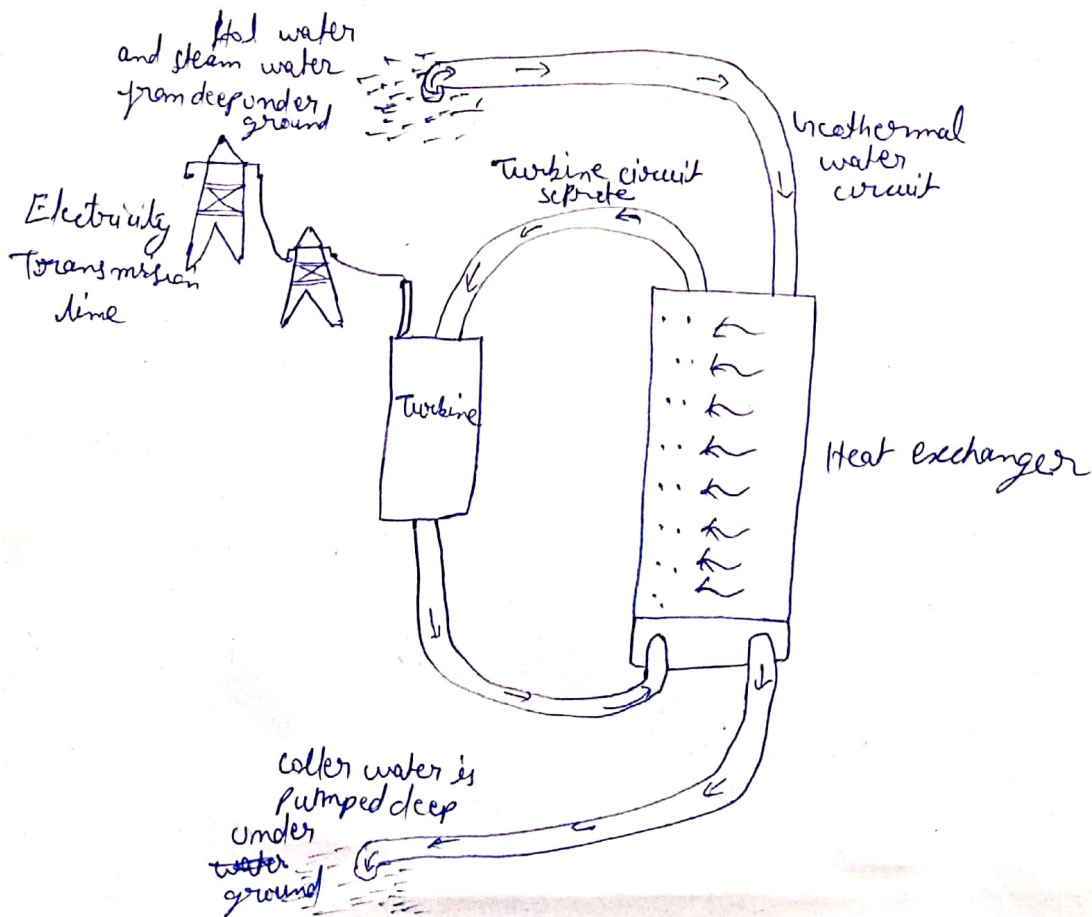 Hot water
and steam water
from deep under
ground
Geothermal
water
circuit
Turbine circuit
seprete
Electricity
Transmission
line
Turbine
Heat exchanger
coller water is
Pumped deep
under
water
ground